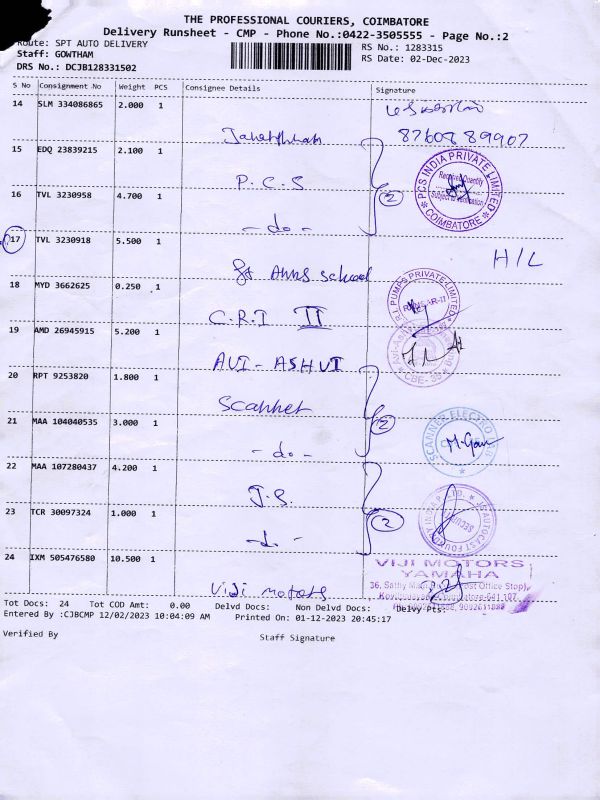 THE PROFESSIONAL COURIERS, COIMBATORE
Delivery Runsheet - CMP - Phone No.:0422-3505555 - Page No.:2
Route: SPT AUTO DELIVERY
RS No.: 1283315
Staff: GOWTHAM
RS Date: 02-Dec-2023
DRS No.: DCJB128331502
S No Consignment No Weight PCS Consignee Details Signature
14 SLM 334086865 2.000 1
8760889907
15 EDQ 23839215 2.100 1
P.C.S
PCS INDIA PRIVATE LIMITED
Received Quantity
Subject to Verification
* COIMBATORE *
16 TVL 3230958 4.700 1
2
- do -
17 TVL 3230918 5.500 1
H/L
St Anns school
18 MYD 3662625 0.250 1
C.R.I II
PUMPS PRIVATE LIMITED
19 AMD 26945915 5.200 1
AVI - ASHVI
20 RPT 9253820 1.800 1
Scanner
21 MAA 104040535 3.000 1
2
SCANNER ELECTRO
- do -
22 MAA 107280437 4.200 1
J.S.
23 TCR 30097324 1.000 1
2
JS AUTOCAST FOUNDRY
- do -
24 IXM 505476580 10.500 1
VIJI MOTORS
YAMAHA
Viji motors
Tot Docs: 24 Tot COD Amt: 0.00 Delvd Docs: Non Delvd Docs: Delvy Pts:
Entered By :CJBCMP 12/02/2023 10:04:09 AM Printed On: 01-12-2023 20:45:17
Verified By Staff Signature